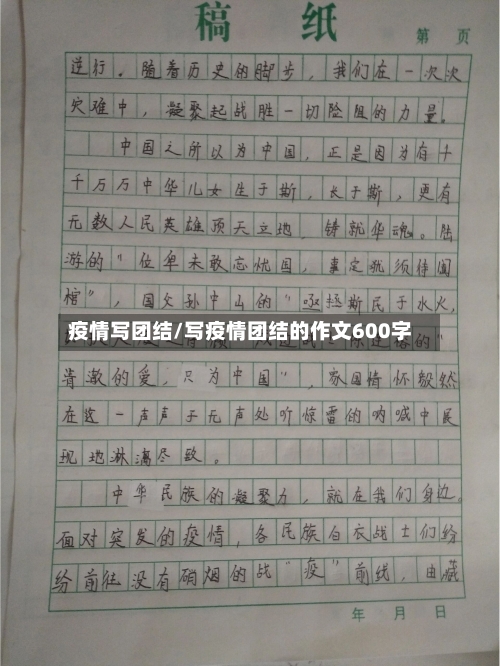 稿 纸
第 页
逆行。随着历史的脚步，我们在一次次
灾难中，凝聚起战胜一切险阻的力量。
中国之所以为中国，正是因为有十
千万万中华儿女生于斯，长于斯，更有
无数人民英雄顶天立地，铸就华魂。陆
游的“位卑未敢忘忧国，事定犹须待阖
棺”，国父孙中山的“亟拯斯民于水火，
疫情写团结/写疫情团结的作文600字
清澈的爱，只为中国”，家国情怀毅然
在这一声声于无声处听惊雷的呐喊中展
现地淋漓尽致。
中华民族的凝聚力，就在我们身边。
面对突发的疫情，各民族白衣战士们纷
纷前往没有硝烟的战“疫”前线，由藏
年 月 日